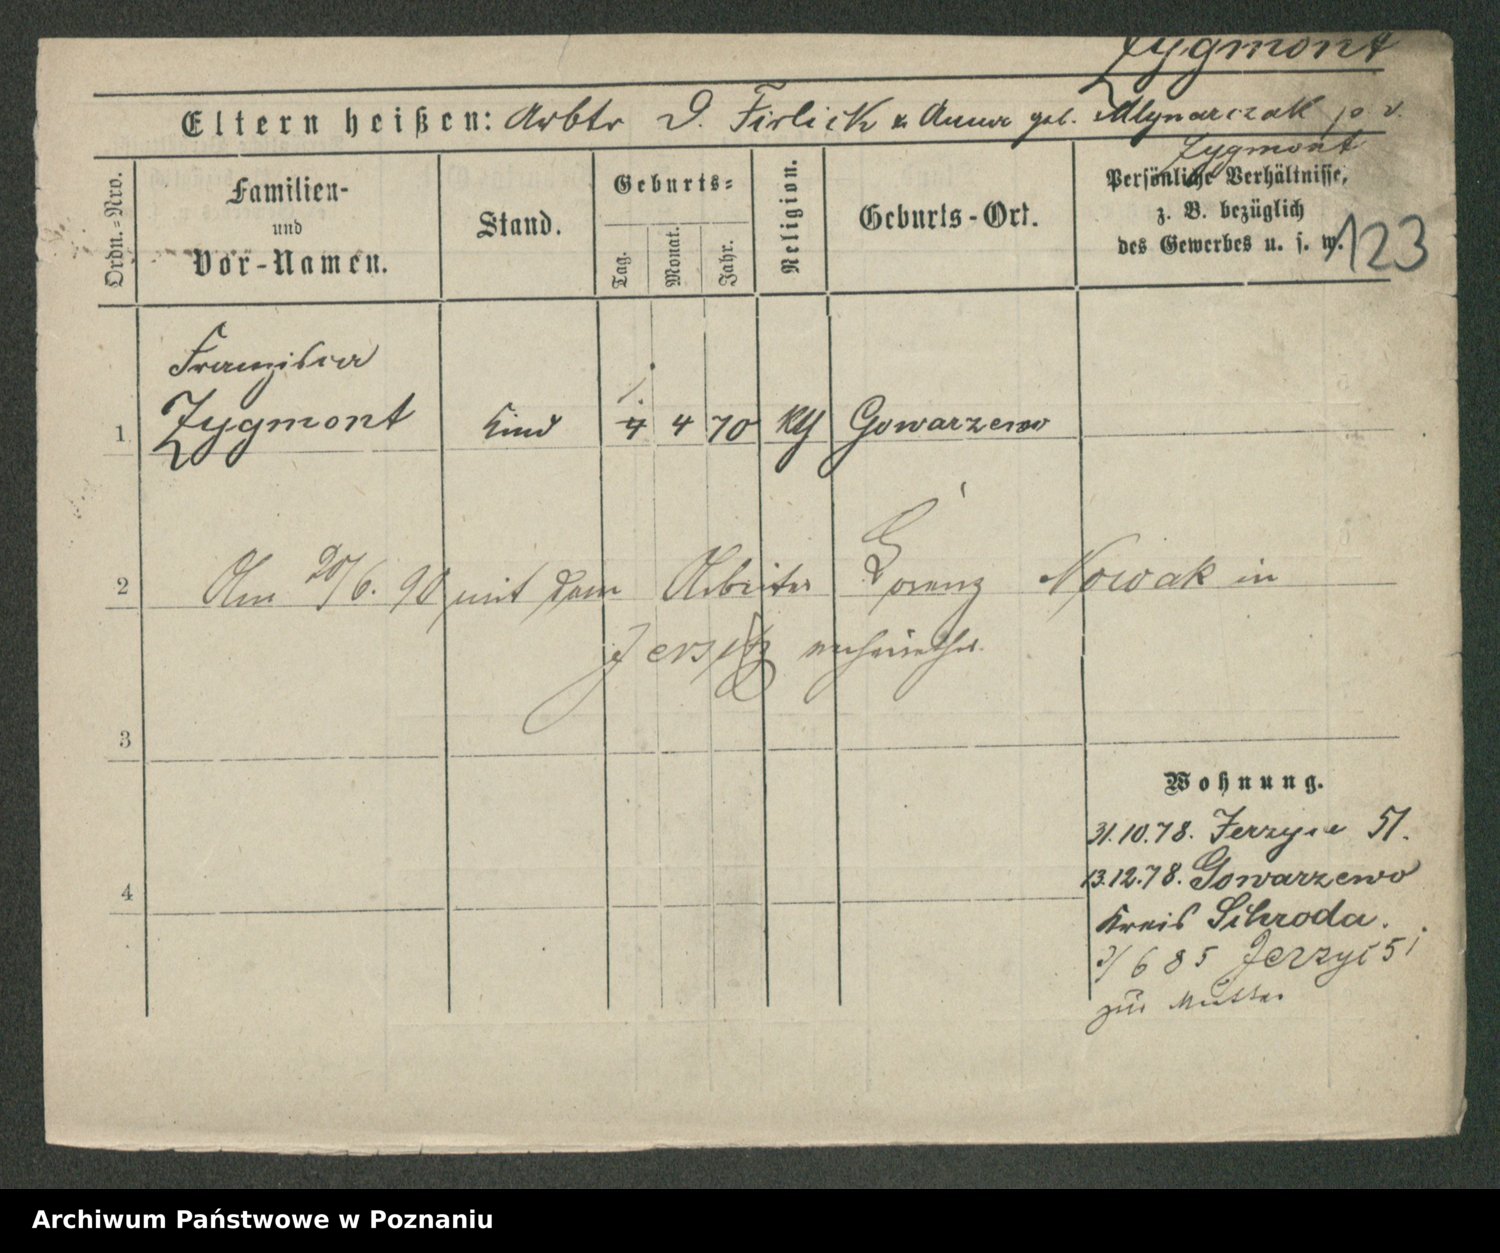 Zygmont
Eltern heißen: Arbtr D. Firlick u. Anna geb. Mlynarczak
Zygmont
Ordn.-Nro.
Familien-
und
Vor-Namen.
Stand.
Geburts-
Tag.
Monat.
Jahr.
Religion.
Geburts-Ort.
Persönliche Verhältnisse,
z. B. bezüglich
des Gewerbes u. s. w.
123
Franziska
1 Zygmont Kind 4 4 70 kth Gowarzewo
1.
2 Am 20/6. 90 mit dem Arbeiter Lorenz Nowak in
Jersitz verheirathet.
3
Wohnung.
31.10.78. Jerzyce 51.
13.12.78. Gowarzewo
4
Kreis Schroda.
6 85 Jerzyc 51
zur Mutter
Archiwum Państwowe w Poznaniu